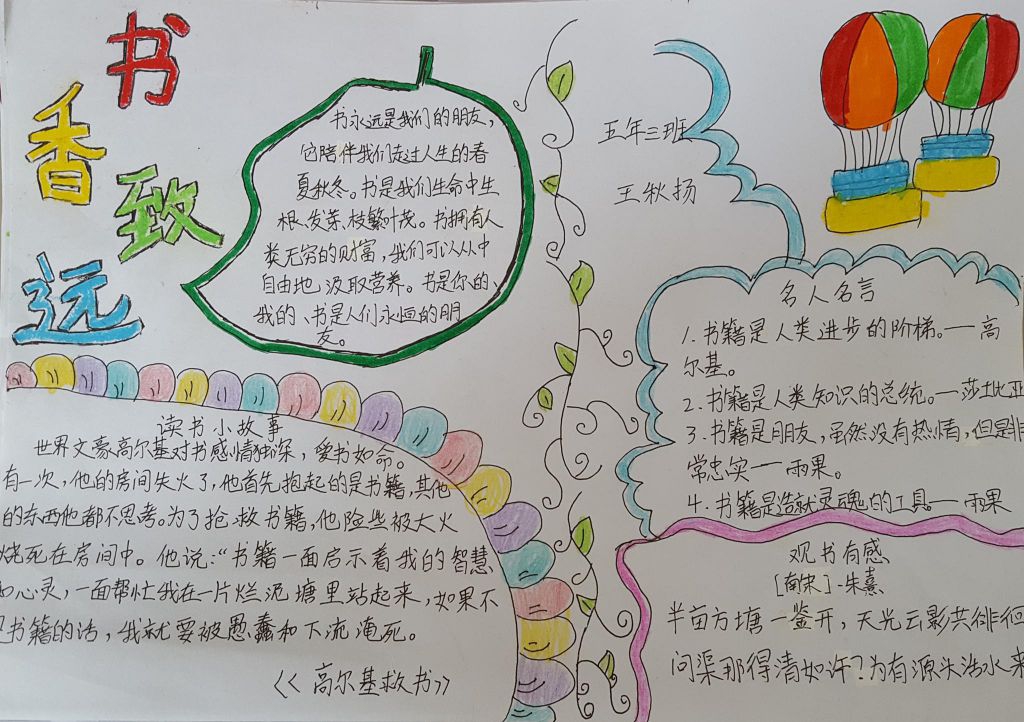 书
香
致
远
书永远是我们的朋友，
它陪伴我们走过人生的春
夏秋冬。书是我们生命中生
根、发芽、枝繁叶茂。书拥有人
类无穷的财富，我们可以从中
自由地汲取营养。书是你的、
我的、书是人们永恒的朋
友。
五年三班
王秋扬
读书小故事
世界文豪高尔基对书感情独深，爱书如命。
有一次，他的房间失火了，他首先抱起的是书籍，其他
的东西他都不思考。为了抢救书籍，他险些被大火
烧死在房间中。他说：“书籍一面启示着我的智慧
和心灵，一面帮忙我在一片烂泥塘里站起来，如果不
书籍的话，我就要被愚蠢和下流淹死。
《高尔基救书》
名人名言
1. 书籍是人类进步的阶梯。——高
尔基。
2. 书籍是人类知识的总统。——莎士比亚
3. 书籍是朋友，虽然没有热情，但是非
常忠实——雨果。
4. 书籍是造就灵魂的工具——雨果
观书有感
[南宋]-朱熹
半亩方塘一鉴开，天光云影共徘徊
问渠那得清如许？为有源头活水来